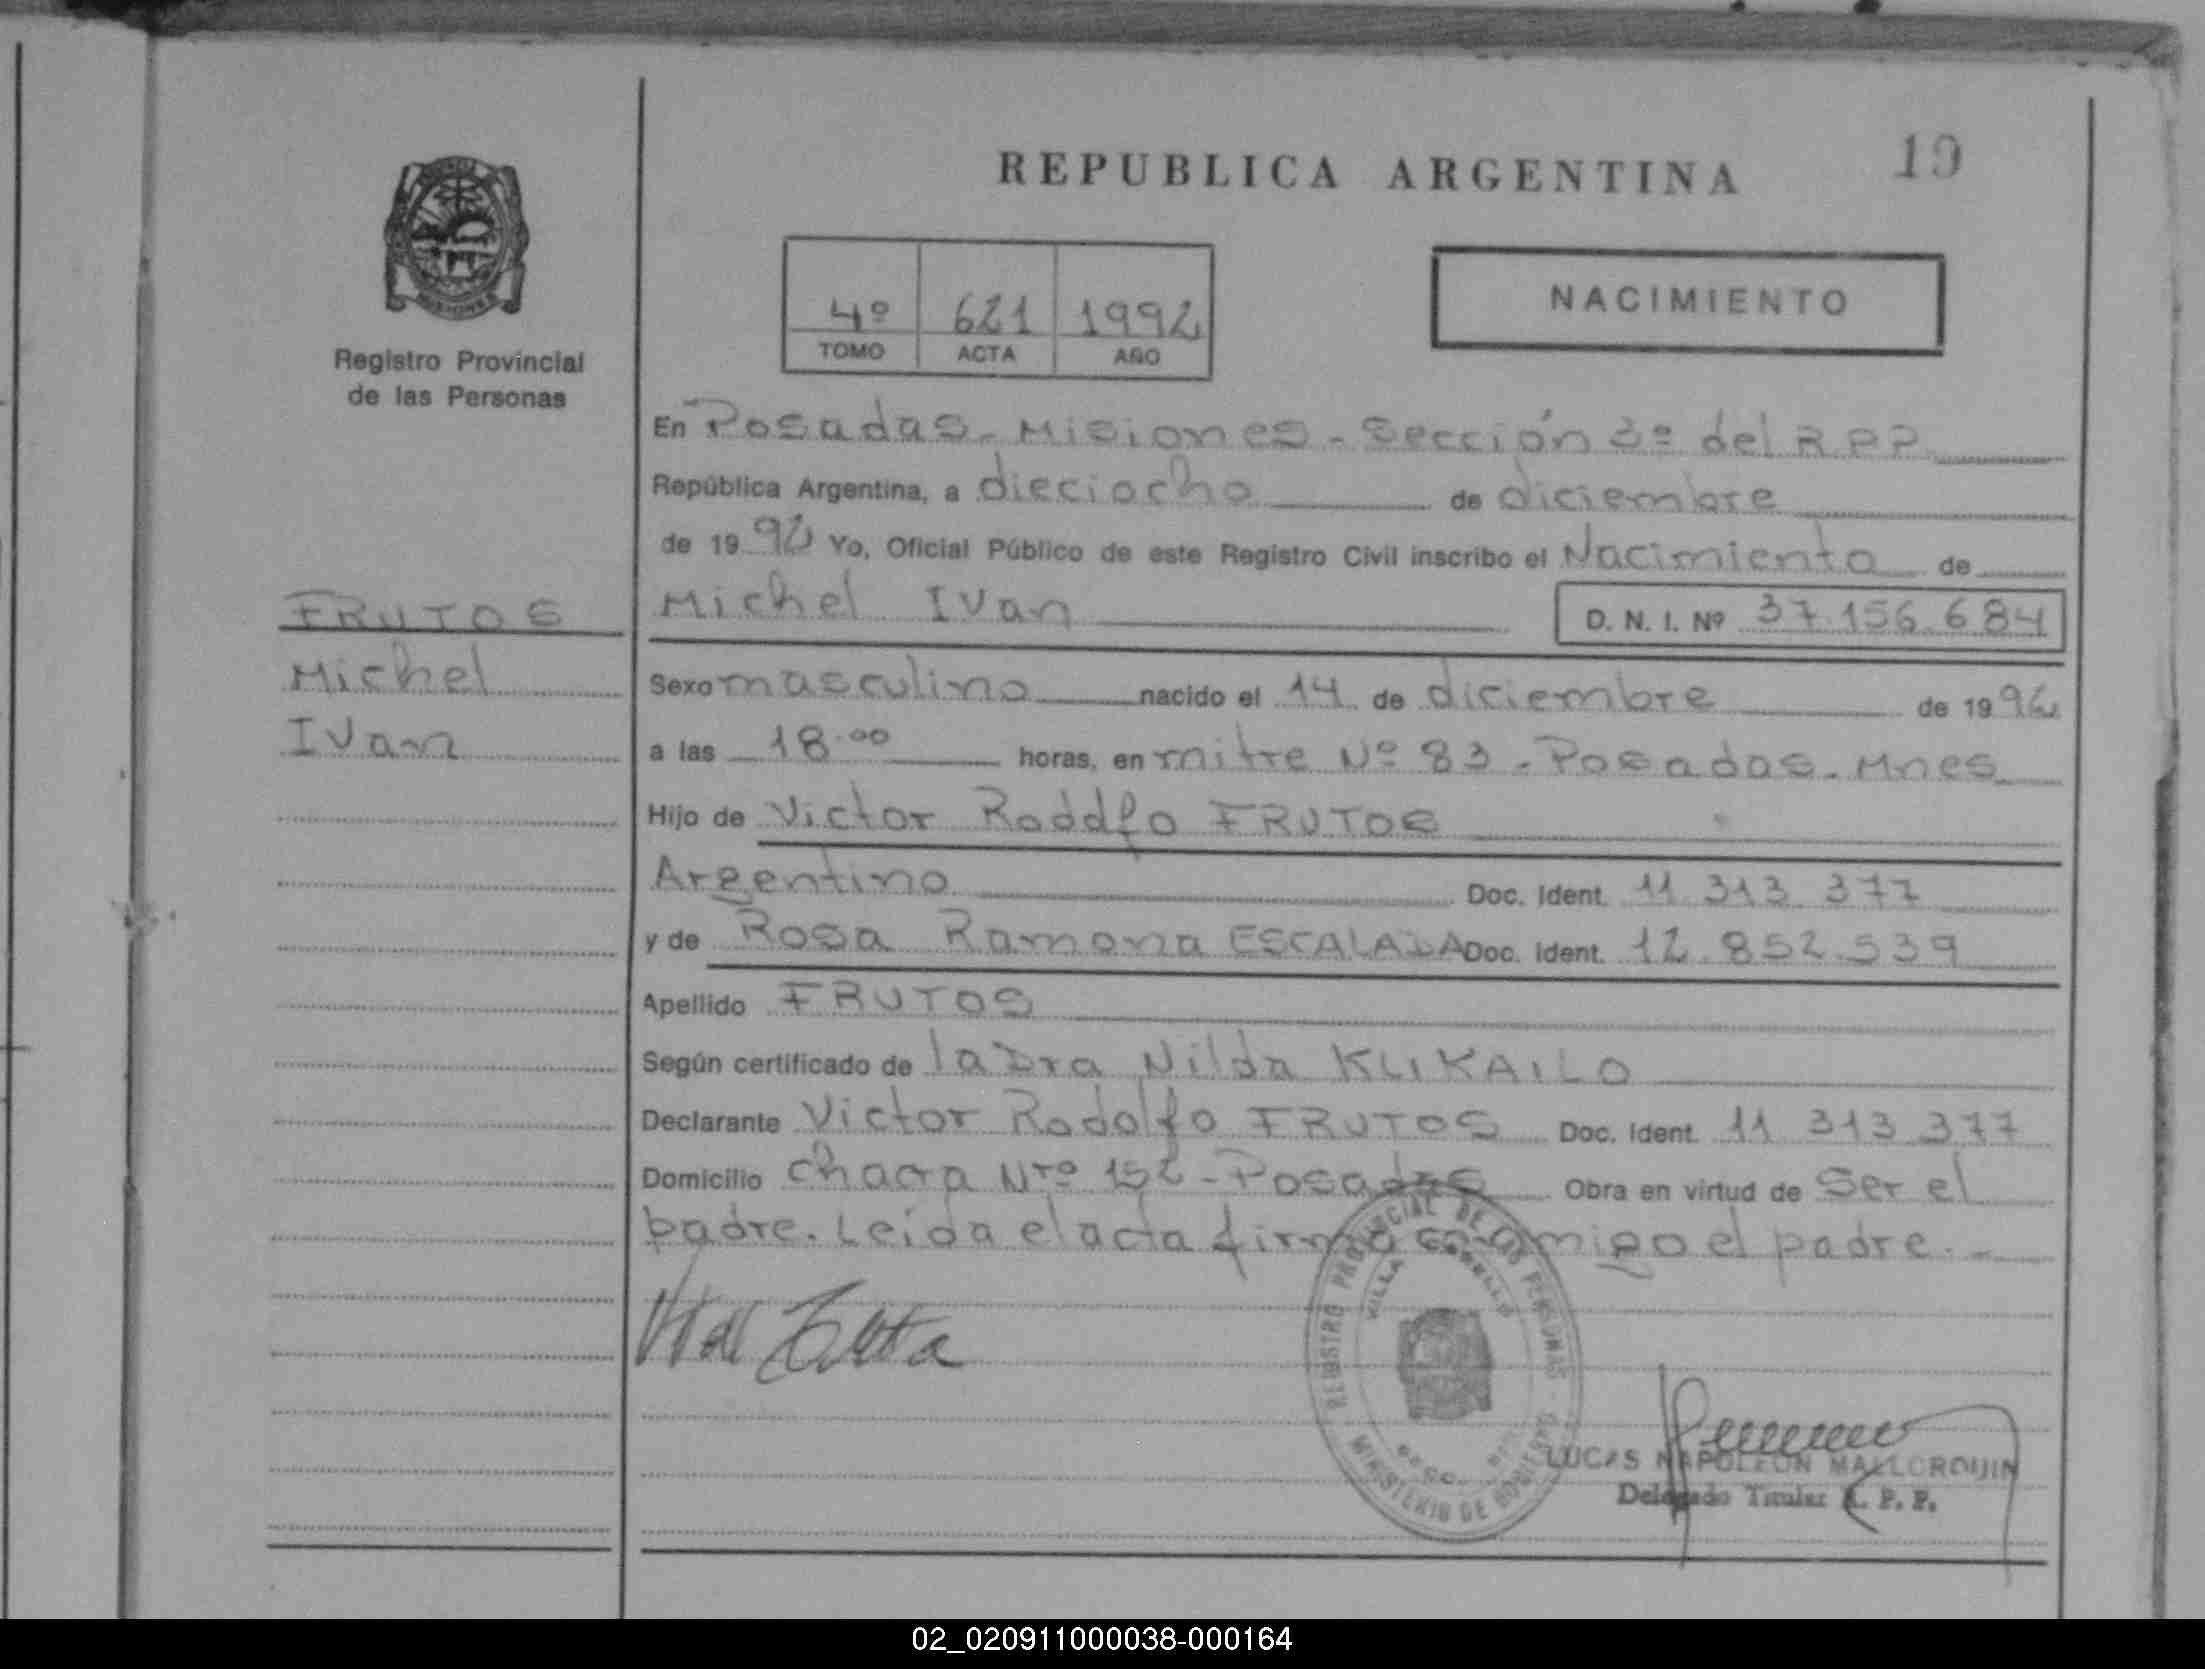 REPUBLICA ARGENTINA
19
4º 621 1992
TOMO ACTA AÑO
NACIMIENTO
Registro Provincial
de las Personas
En Posadas - Misiones - Sección 3º del R P P
República Argentina, a dieciocho de diciembre
de 1992 Yo, Oficial Público de este Registro Civil inscribo el Nacimiento de
Michel Ivan D. N. I. Nº 37.156.684
FRUTOS
Michel
Ivan
Sexo masculino nacido el 14 de diciembre de 1992
a las 18.00 horas, en mitre Nº 83 - Posadas - Mnes
Hijo de Victor Rodolfo FRUTOS
Argentino Doc. Ident. 11 313 377
y de Rosa Ramona ESCALADA Doc. Ident. 12.852.539
Apellido FRUTOS
Según certificado de la Dra Nilda KLIKAILO
Declarante Victor Rodolfo FRUTOS Doc. Ident. 11 313 377
Domicilio Chacra Nrº 152 - Posadas Obra en virtud de Ser el
padre. Leída el acta firma conmigo el padre. -
REGISTRO PROVINCIAL DE LAS PERSONAS
MINISTERIO DE GOBIERNO
VILLA
LUCAS NAPOLEON MALLORQUIN
Delegado Titular R. P. P.
02_020911000038-000164